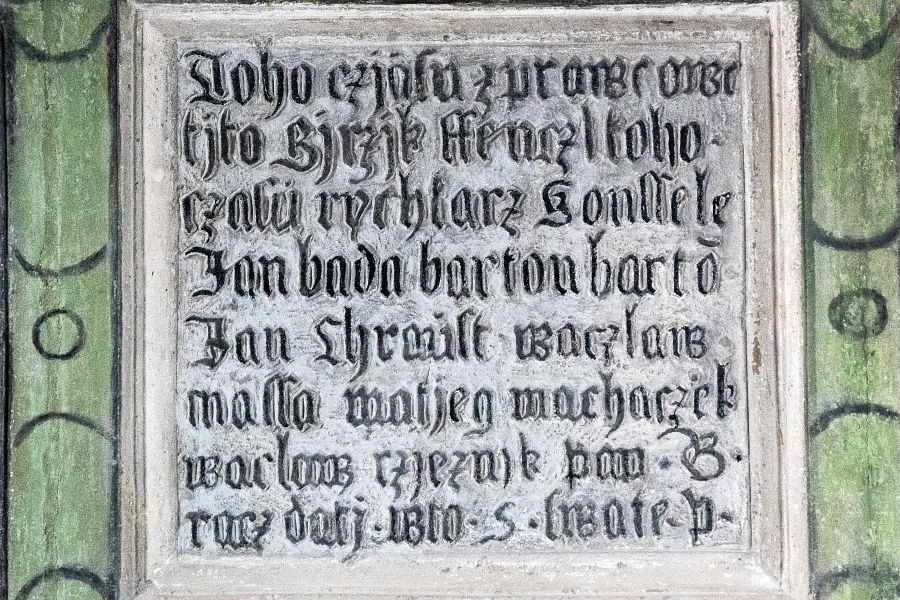 Toho czjasu zprawcowe
tjto Sjrzjk Wenczl toho
czasu rychtarz Konssele
Jan bada barton barto
Jan Chraust waczlaw
massa matjeg machaczek
waclaw czjeznjk pan · B ·
racz datj · wto · 5 · swate · p ·